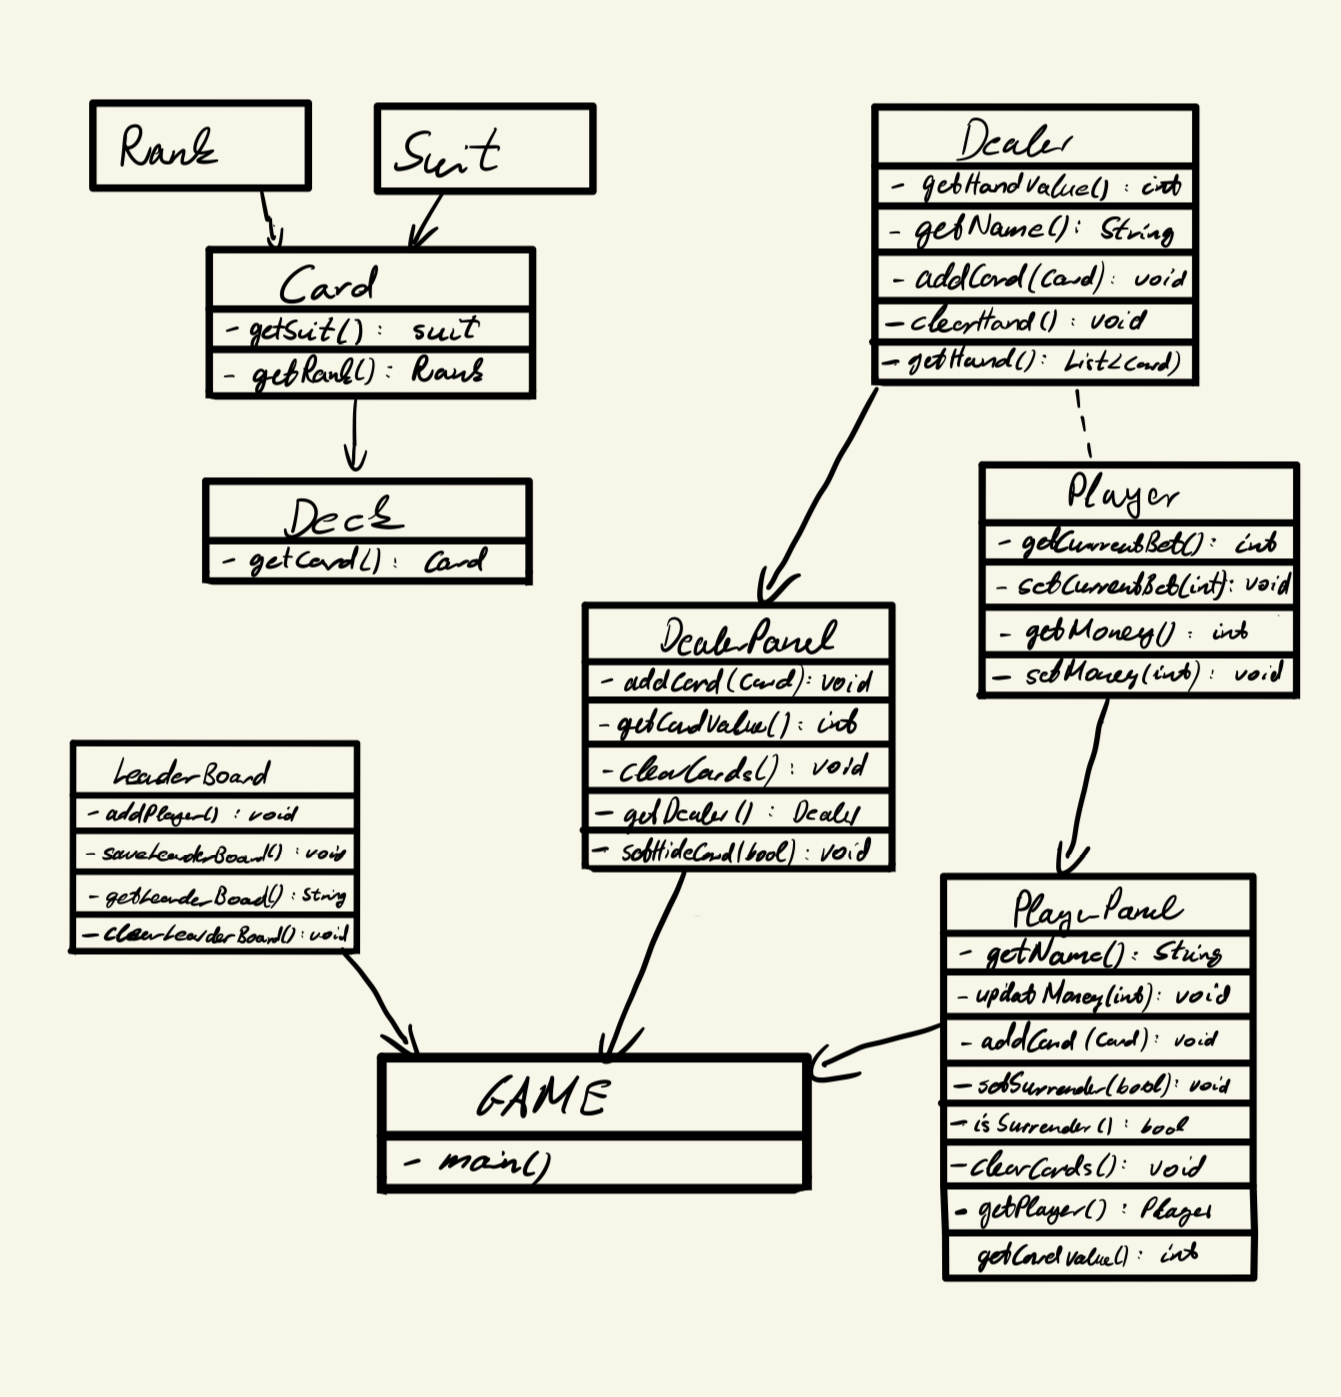 Rank
Suit
Card
- getSuit() : suit
- getRank() : Rank
Deck
- getCard() : Card
Dealer
- getHandValue() : int
- getName() : String
- addCard(Card) : void
- clearHand() : void
- getHand() : List<Card)
Player
- getCurrentBet() : int
- setCurrentBet(int) : void
- getMoney() : int
- setMoney(int) : void
DealerPanel
- addCard(Card) : void
- getCardValue() : int
- clearCards() : void
- getDealer() : Dealer
- setHideCard(bool) : void
LeaderBoard
- addPlayer() : void
- saveLeaderBoard() : void
- getLeaderBoard() : String
- clearLeaderBoard() : void
PlayerPanel
- getName() : String
- updatMoney(int) : void
- addCard (Card) : void
- setSurrender(bool) : void
- isSurrender() : bool
- clearCards() : void
- getPlayer() : Player
getCardValue() : int
GAME
- main()